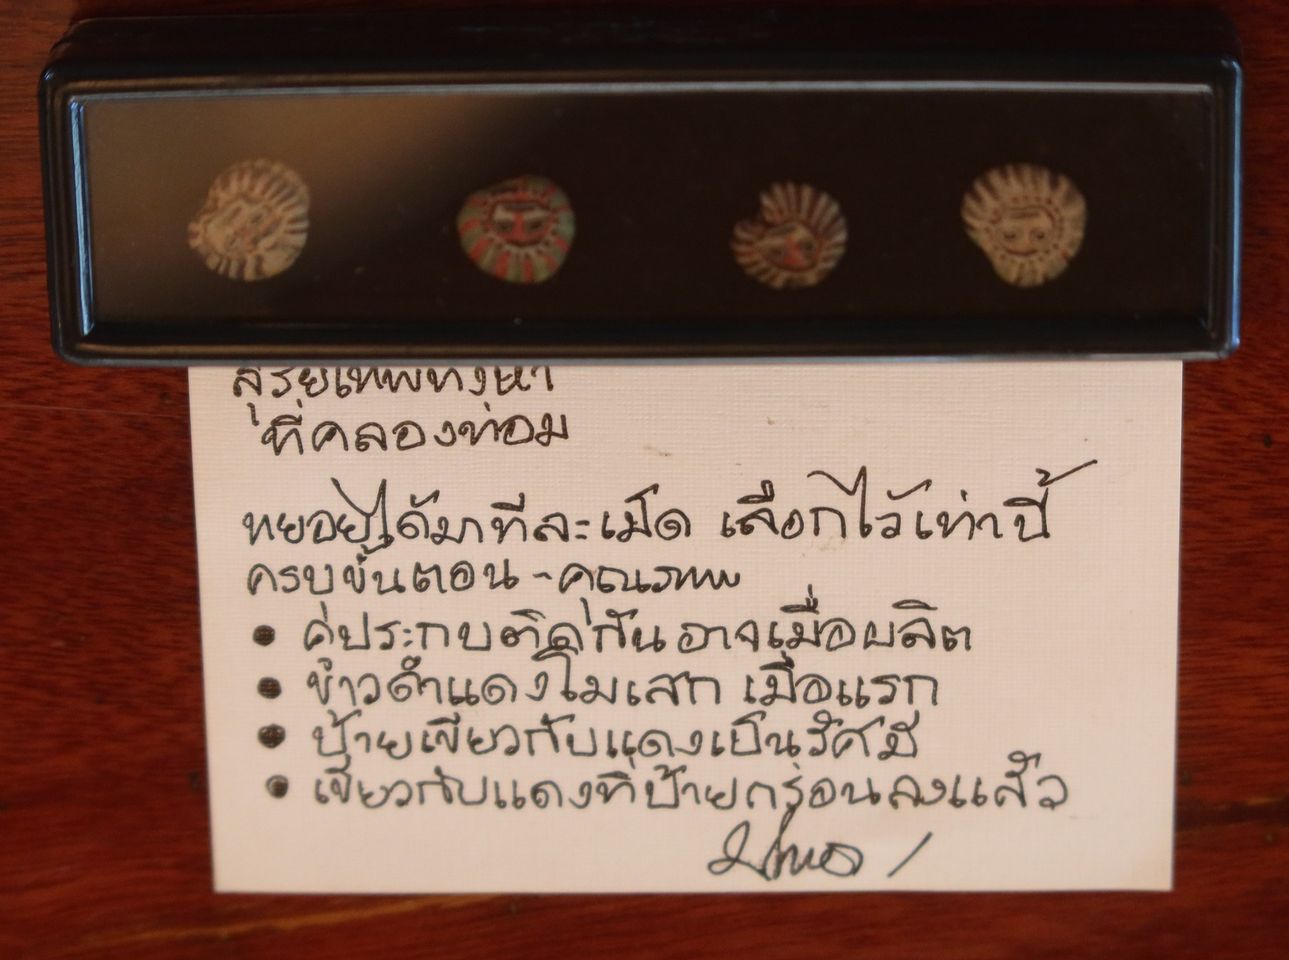 สุริยเทพทั้งห้า
ที่คลองท่อม
ทยอยได้มาทีละเม็ด เลือกไว้เท่านี้
ครบขั้นตอน - คุณภาพ
• คู่ประกบติดกันอาจเมื่อผลิต
• ขาวดำแดงโมเสก เมื่อแรก
• ป้ายเขียวกับแดงเป็นรัศมี
• เขียวกับแดงที่ป้ายกร่อนลงแล้ว